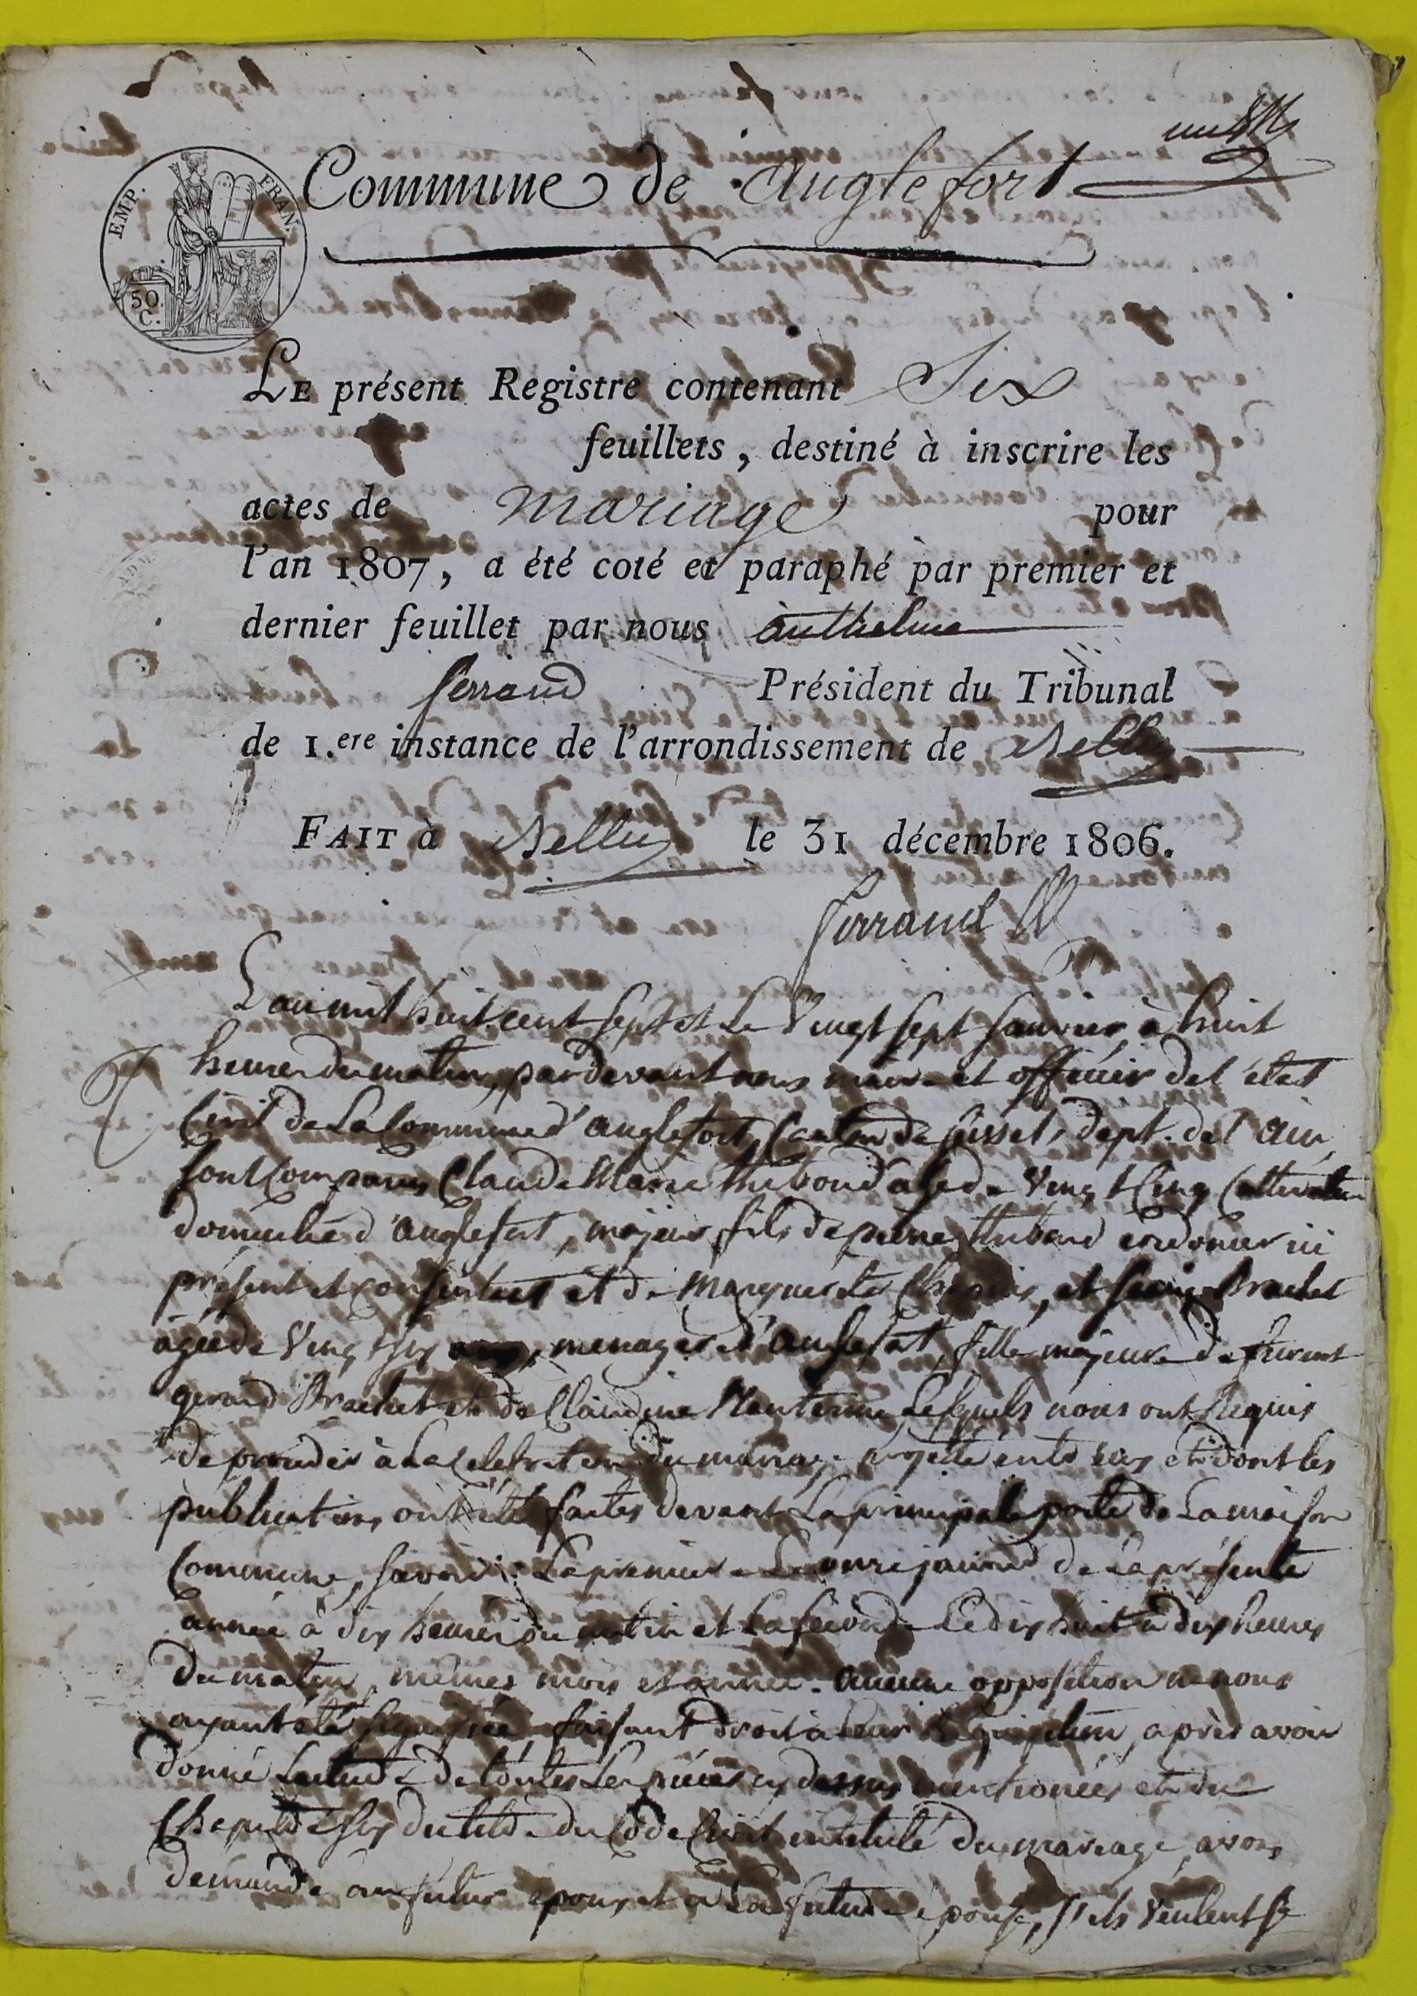 Commune de anglefort
EMP. FRAN.
50 C.
LE présent Registre contenant Six
feuillets, destiné à inscrire les
actes de Mariage pour
l'an 1807, a été coté et paraphé par premier et
dernier feuillet par nous anthelme
ferrand Président du Tribunal
de 1.ere instance de l'arrondissement de Belley
FAIT à Belley le 31 décembre 1806.
ferrand
L'an mil huit cent sept et Le Vingt sept janvier, à huit
heures du matin, pardevant nous maire et officier del'état
Civil de La Commune d'anglefort, Canton de seissel, dept. del'ain,
sont Comparus Claude Marie thiboud agé de Vingt Cinq Cultivateur
domicilié d'anglefort, majeur fils de pierre thiboud cordonier ici
présent et consentant et de Marguerite, et Brachet
âgée de Vingt six, menagere d'anglefort, fille majeure de furent
Brachet et de Claudine Lesquels nous ont Requis
de proceder à La Celebration du mariage projetté entr'eux et dont les
publications ont été faites devant La principale porte de La maison
Commune, savoir: La premiere Le onze janvier de La présente
année à dix heures du matin et La seconde Le dix huit à dix heures
du matin, mêmes mois et année. aucune opposition ne nous
ayant été signifiée faisant droit à Leur Requisition, après avoir
donné Lecture de toutes Les pièces cy dessus mentionées et du
Chapitre six du titre du Code Civil intitulé du mariage, avons
demandé au futur epoux et a La future épouse, s'ils veulent se